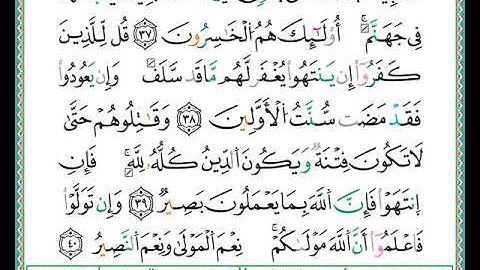 فِى جَهَنَّمَ ۚ أُو۟لَـٰٓئِكَ هُمُ ٱلْخَـٰسِرُونَ ٣٧ قُل لِّلَّذِينَ
كَفَرُوٓا۟ إِن يَنتَهُوا۟ يُغْفَرْ لَهُم مَّا قَدْ سَلَفَ ۖ وَإِن يَعُودُوا۟
فَقَدْ مَضَتْ سُنَّتُ ٱلْأَوَّلِينَ ٣٨ وَقَـٰتِلُوهُمْ حَتَّىٰ
لَا تَكُونَ فِتْنَةٌ وَيَكُونَ ٱلدِّينُ كُلُّهُۥ لِلَّهِ ۚ فَإِنِ
ٱنتَهَوْا۟ فَإِنَّ ٱللَّهَ بِمَا يَعْمَلُونَ بَصِيرٌ ٣٩ وَإِن تَوَلَّوْا۟
فَٱعْلَمُوٓا۟ أَنَّ ٱللَّهَ مَوْلَىٰكُمْ ۚ نِعْمَ ٱلْمَوْلَىٰ وَنِعْمَ ٱلنَّصِيرُ ٤٠